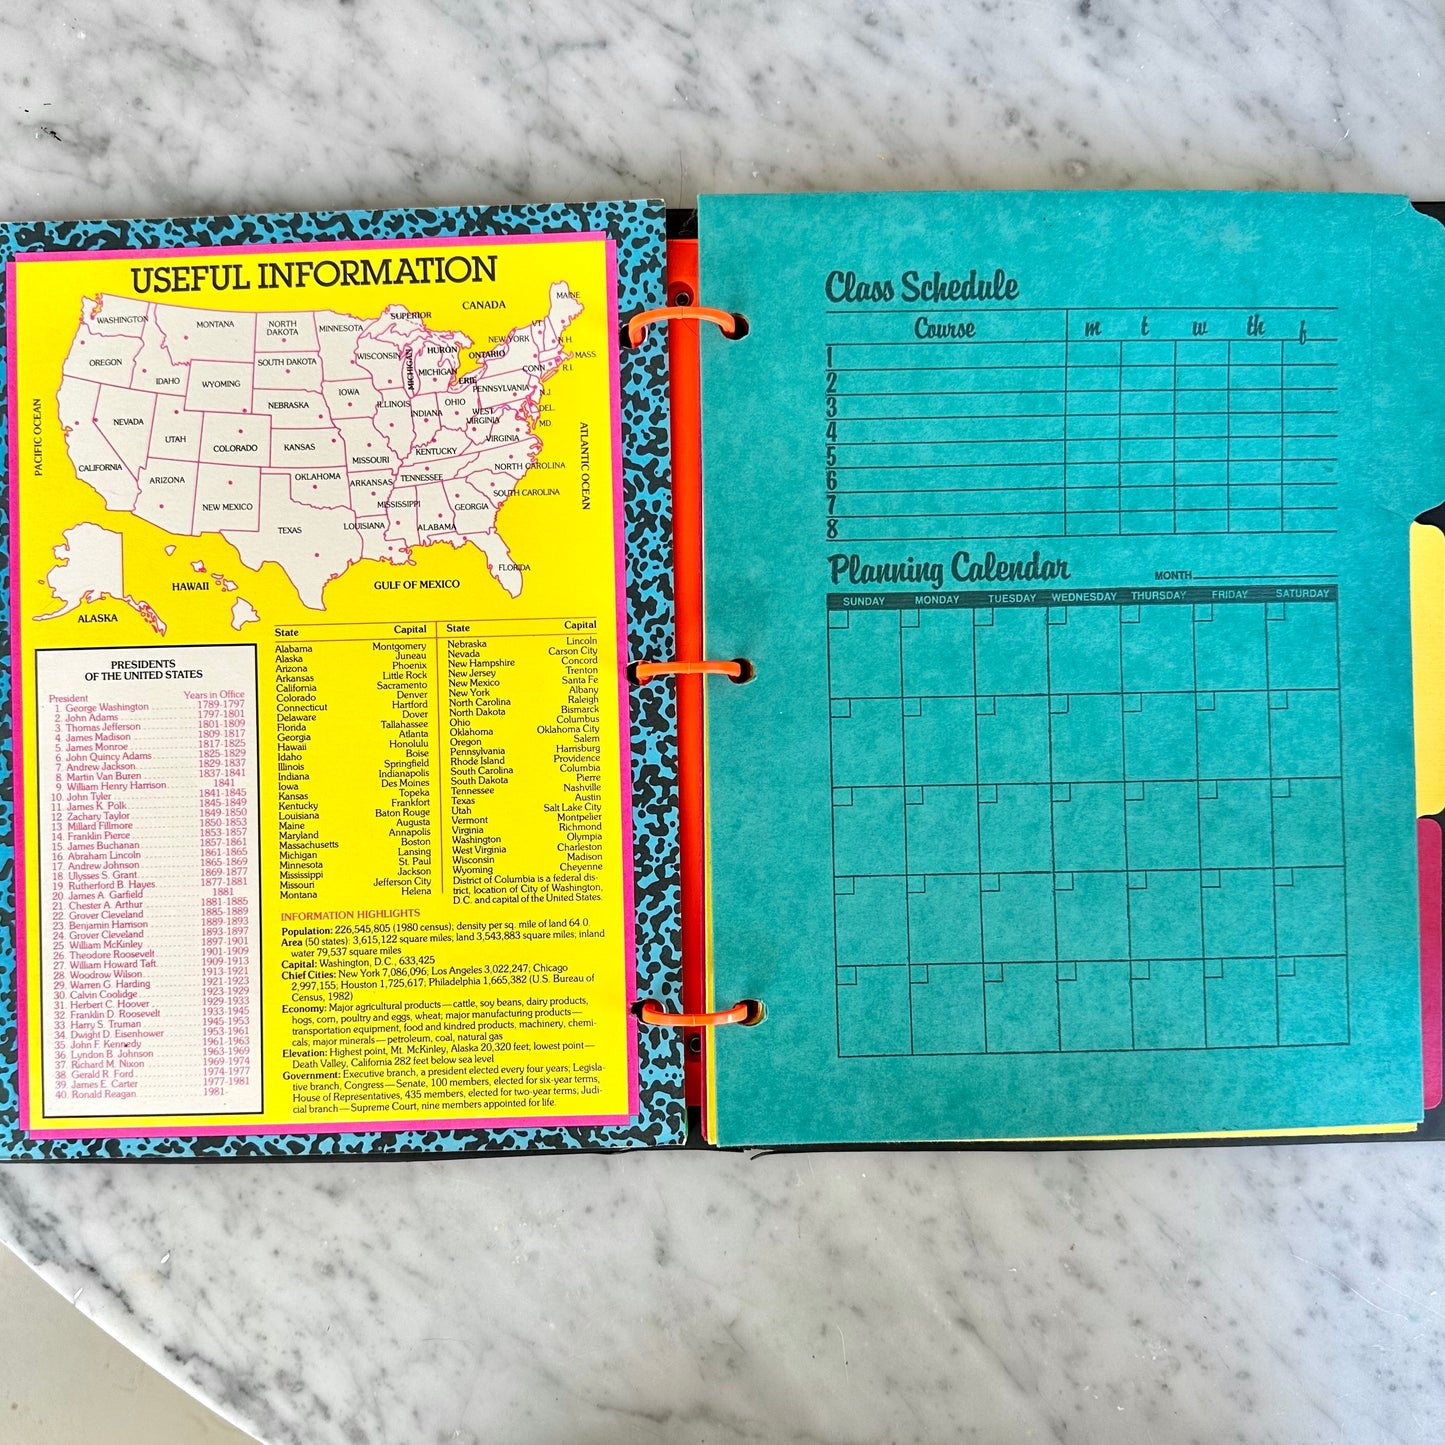 USEFUL INFORMATION
CANADA
MAINE
WASHINGTON
MONTANA
NORTH
DAKOTA
MINNESOTA
SUPERIOR
VT
N.H.
OREGON
IDAHO
WYOMING
SOUTH DAKOTA
WISCONSIN
MICHIGAN
HURON
MICHIGAN
ONTARIO
ERIE
NEW YORK
MASS.
R.I.
CONN
PENNSYLVANIA
N.J.
DEL.
MD.
NEVADA
UTAH
COLORADO
NEBRASKA
KANSAS
IOWA
ILLINOIS
INDIANA
OHIO
WEST
VIRGINIA
VIRGINIA
CALIFORNIA
ARIZONA
NEW MEXICO
OKLAHOMA
MISSOURI
ARKANSAS
KENTUCKY
TENNESSEE
NORTH CAROLINA
SOUTH CAROLINA
TEXAS
LOUISIANA
MISSISSIPPI
ALABAMA
GEORGIA
FLORIDA
PACIFIC OCEAN
ATLANTIC OCEAN
GULF OF MEXICO
HAWAII
ALASKA
PRESIDENTS
OF THE UNITED STATES
President Years in Office
1. George Washington 1789-1797
2. John Adams 1797-1801
3. Thomas Jefferson 1801-1809
4. James Madison 1809-1817
5. James Monroe 1817-1825
6. John Quincy Adams 1825-1829
7. Andrew Jackson 1829-1837
8. Martin Van Buren 1837-1841
9. William Henry Harrison 1841
10. John Tyler 1841-1845
11. James K. Polk 1845-1849
12. Zachary Taylor 1849-1850
13. Millard Fillmore 1850-1853
14. Franklin Pierce 1853-1857
15. James Buchanan 1857-1861
16. Abraham Lincoln 1861-1865
17. Andrew Johnson 1865-1869
18. Ulysses S. Grant 1869-1877
19. Rutherford B. Hayes 1877-1881
20. James A. Garfield 1881
21. Chester A. Arthur 1881-1885
22. Grover Cleveland 1885-1889
23. Benjamin Harrison 1889-1893
24. Grover Cleveland 1893-1897
25. William McKinley 1897-1901
26. Theodore Roosevelt 1901-1909
27. William Howard Taft 1909-1913
28. Woodrow Wilson 1913-1921
29. Warren G. Harding 1921-1923
30. Calvin Coolidge 1923-1929
31. Herbert C. Hoover 1929-1933
32. Franklin D. Roosevelt 1933-1945
33. Harry S. Truman 1945-1953
34. Dwight D. Eisenhower 1953-1961
35. John F. Kennedy 1961-1963
36. Lyndon B. Johnson 1963-1969
37. Richard M. Nixon 1969-1974
38. Gerald R. Ford 1974-1977
39. James E. Carter 1977-1981
40. Ronald Reagan 1981-
State Capital
Alabama Montgomery
Alaska Juneau
Arizona Phoenix
Arkansas Little Rock
California Sacramento
Colorado Denver
Connecticut Hartford
Delaware Dover
Florida Tallahassee
Georgia Atlanta
Hawaii Honolulu
Idaho Boise
Illinois Springfield
Indiana Indianapolis
Iowa Des Moines
Kansas Topeka
Kentucky Frankfort
Louisiana Baton Rouge
Maine Augusta
Maryland Annapolis
Massachusetts Boston
Michigan Lansing
Minnesota St. Paul
Mississippi Jackson
Missouri Jefferson City
Montana Helena
State Capital
Nebraska Lincoln
Nevada Carson City
New Hampshire Concord
New Jersey Trenton
New Mexico Santa Fe
New York Albany
North Carolina Raleigh
North Dakota Bismarck
Ohio Columbus
Oklahoma Oklahoma City
Oregon Salem
Pennsylvania Harrisburg
Rhode Island Providence
South Carolina Columbia
South Dakota Pierre
Tennessee Nashville
Texas Austin
Utah Salt Lake City
Vermont Montpelier
Virginia Richmond
Washington Olympia
West Virginia Charleston
Wisconsin Madison
Wyoming Cheyenne
District of Columbia is a federal dis-
trict, location of City of Washington,
D.C. and capital of the United States.
INFORMATION HIGHLIGHTS
Population: 226,545,805 (1980 census); density per sq. mile of land 64.0
Area (50 states): 3,615,122 square miles; land 3,543,883 square miles; inland
water 79,537 square miles
Capital: Washington, D.C., 633,425
Chief Cities: New York 7,086,096; Los Angeles 3,022,247; Chicago
2,997,155; Houston 1,725,617; Philadelphia 1,665,382 (U.S. Bureau of
Census, 1982)
Economy: Major agricultural products—cattle, soy beans, dairy products,
hogs, corn, poultry and eggs, wheat; major manufacturing products—
transportation equipment, food and kindred products, machinery, chemi-
cals, major minerals—petroleum, coal, natural gas
Elevation: Highest point, Mt. McKinley, Alaska 20,320 feet; lowest point—
Death Valley, California 282 feet below sea level
Government: Executive branch, a president elected every four years; Legisla-
tive branch, Congress—Senate, 100 members, elected for six-year terms,
House of Representatives, 435 members, elected for two-year terms; Judi-
cial branch—Supreme Court, nine members appointed for life.
Class Schedule
Course m t w th f
1
2
3
4
5
6
7
8
Planning Calendar MONTH
SUNDAY MONDAY TUESDAY WEDNESDAY THURSDAY FRIDAY SATURDAY